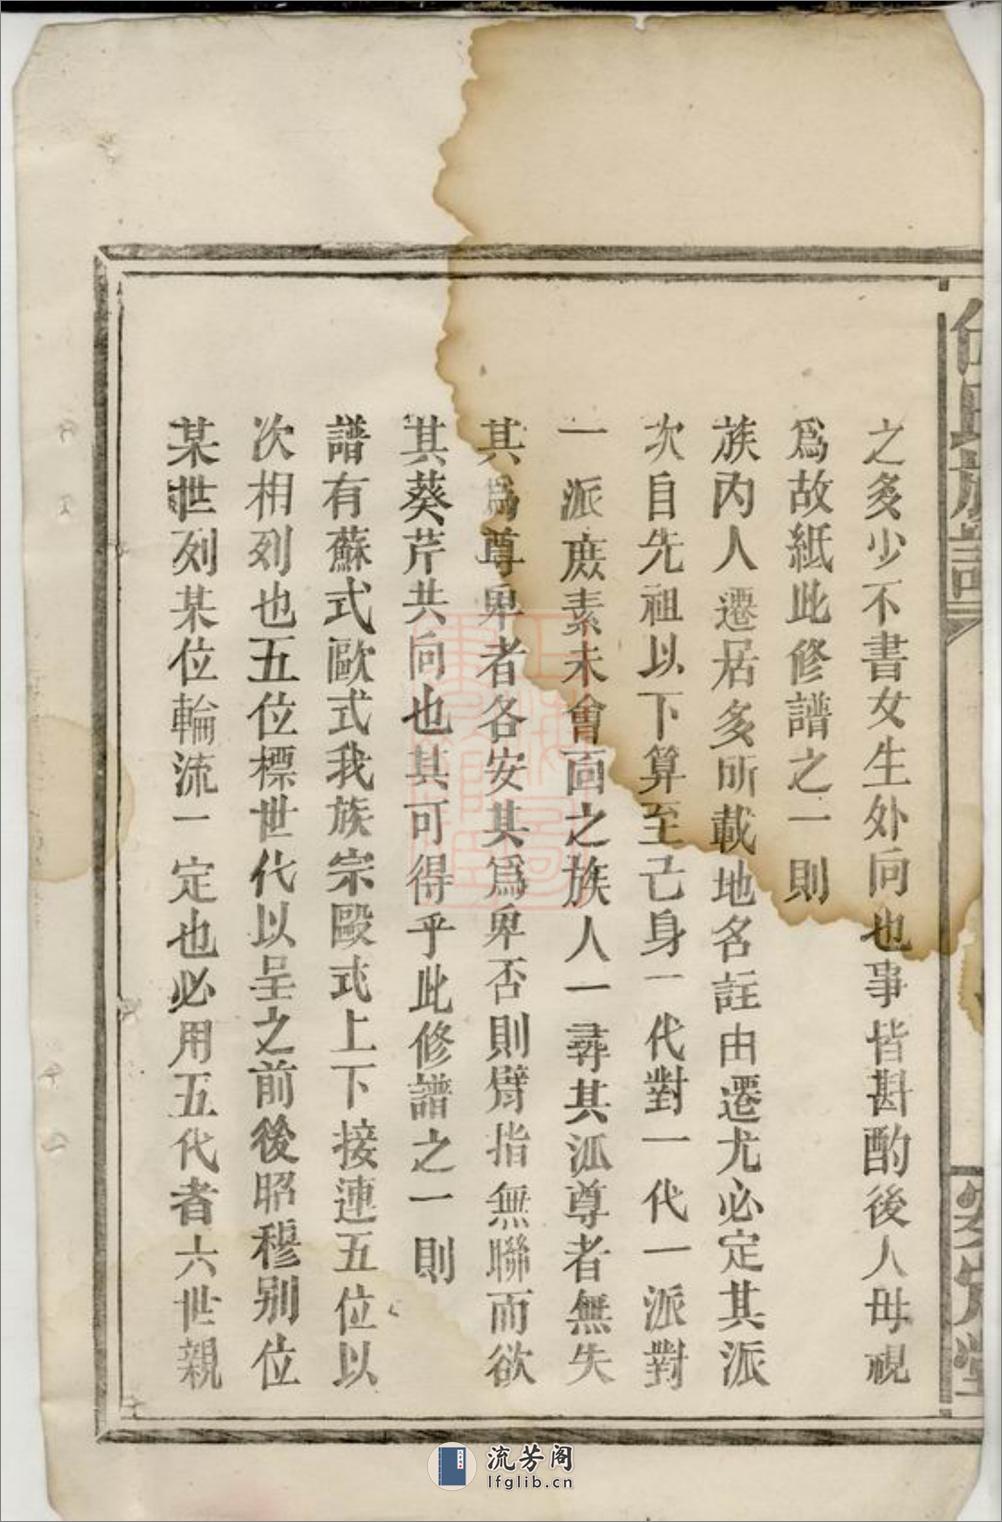 之多少不書女生外向也事皆斟酌後人毋視
爲故紙此修譜之一則
族內人遷居多所載地名註由遷尤必定其派
次自先祖以下算至己身一代對一代一派對
一派庶素未會面之族人一尋其派尊者無失
其爲尊卑者各安其爲卑否則臂指無聯而欲
其葵芹共向也其可得乎此修譜之一則
譜有蘇式歐式我族宗歐式上下接連五位以
次相列也五位標世代以呈之前後昭穆別位
某世列某位輪流一定也必用五代者六世親
氏族譜
堂
流芳阁
lfglib.cn